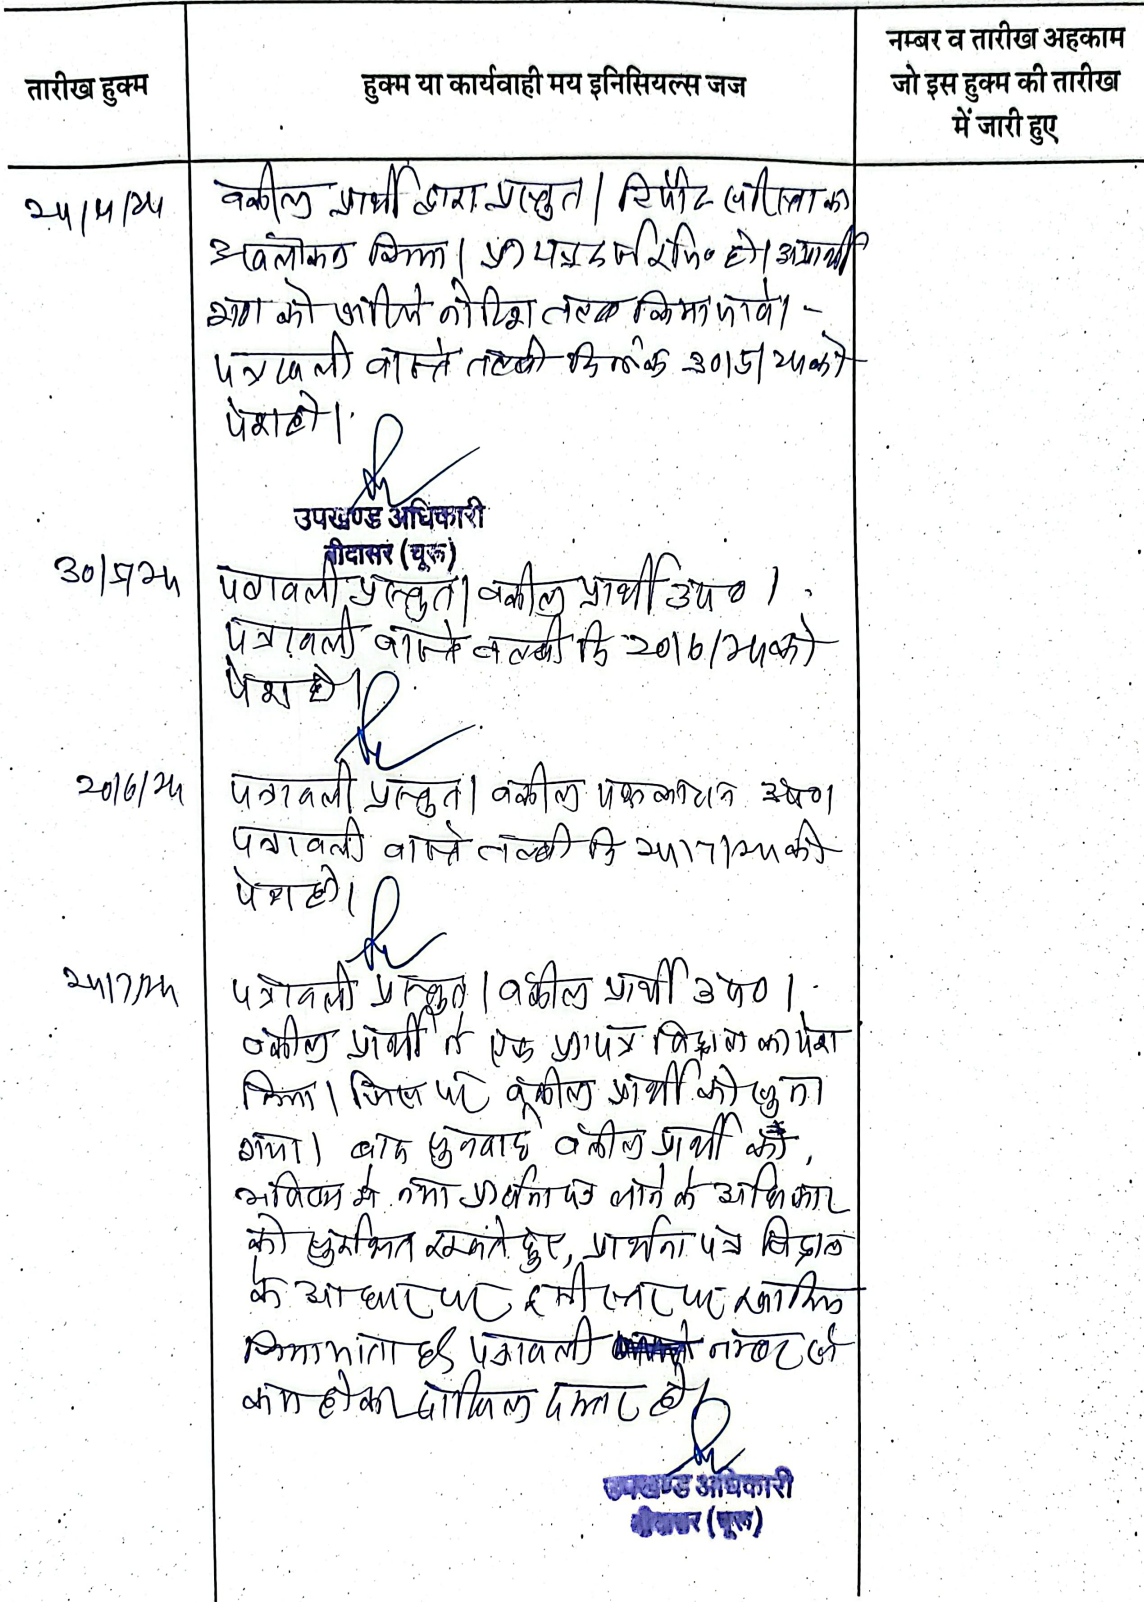 तारीख हुक्म
हुक्म या कार्यवाही मय इनिसियल्स जज
नम्बर व तारीख अहकाम
जो इस हुक्म की तारीख
में जारी हुए
वकील प्रार्थी द्वारा प्रस्तुत। रिपोर्ट का
अवलोकन किया। प्रा पत्र दर्ज रजि० हो। अप्रार्थी
गण को जरिये नोटिश तलब किया जावे। -
पत्रावली वास्ते तलबी दिनांक 30/5/24 को
पेश हो।
उपखण्ड अधिकारी
बीदासर (चूरू)
30/5/24
पत्रावली प्रस्तुत। वकील प्रार्थी उप० ।
पत्रावली वास्ते तलबी दि 20/6/24 को
पेश हो।
20/6/24
पत्रावली प्रस्तुत। वकील उप०।
पत्रावली वास्ते तलबी दि 24/7/24 को
पेश हो।
24/7/24
पत्रावली प्रस्तुत। वकील प्रार्थी उप० ।
वकील प्रार्थी ने एक प्रा पत्र विड्राल का पेश
किया। जिस पर वकील प्रार्थी को सुना
गया। बाद सुनवाई वकील प्रार्थी को,
भविष्य मे नया प्रार्थना पत्र लाने के अधिकार
को सुरक्षित रखते हुए, प्रार्थना पत्र विड्राल
के आधार पर इसी स्तर पर खारिज
किया जाता है। पत्रावली नम्बर से
कम होकर दाखिल दफ्तर हो।
उपखण्ड अधिकारी
बीदासर (चूरू)